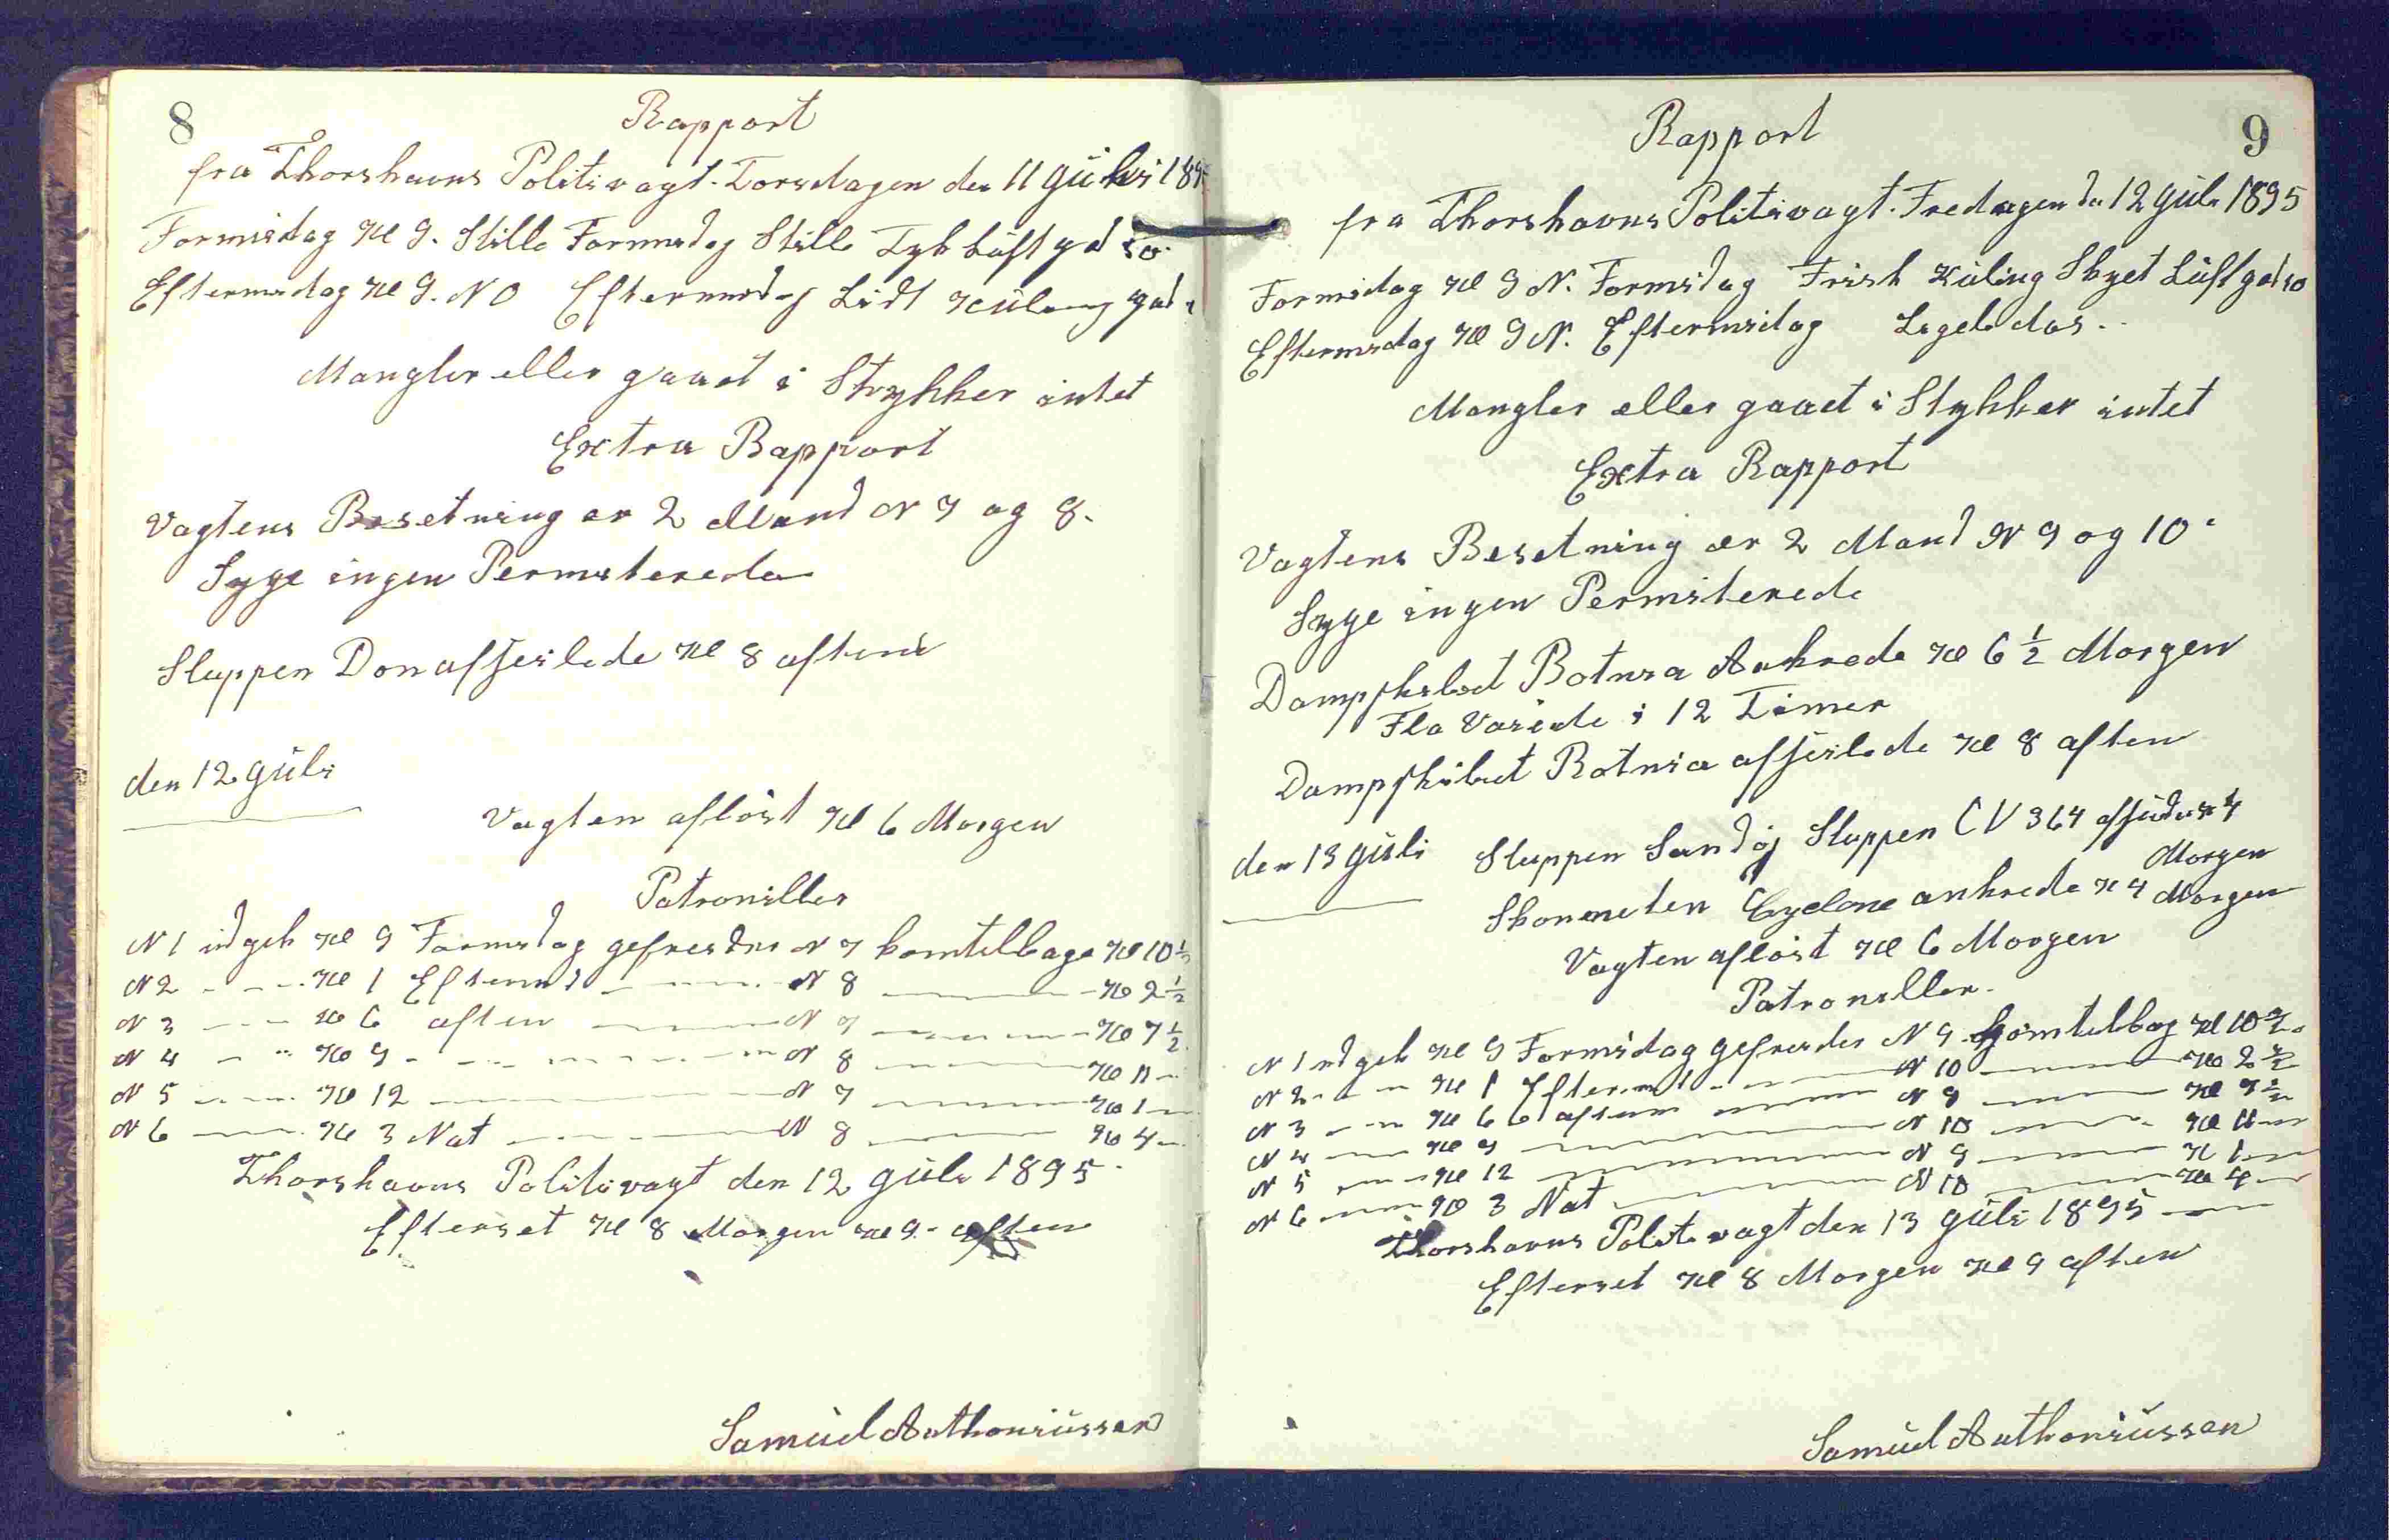 8
Rapport
fra Thorshavns Politivagt. Torsdagen den 11 Guli 189
Formidag Kl 9. Stille Formidag Stille Tyk Luft gd 10.
Eftermidag Kl 9. NO Eftermidag Lidt Kuling gad
Mangler eller gaaet i Strykker intet
Extra Rapport
Vagtens Besetning er 2 Mand N 7 og 8.
Syge ingen Permiterede
Sluppen Don afseilede Kl 8 aften
den 12 Guli
Vagten afløst Kl 6 Morgen
Patroniller
N 1 udgik Kl 9 Formidag gefreider N 7 komtilbage Kl 10 ½
N 2 - - - Kl 1 Efterm - - - N 8 - - - Kl 2 ½
N 3 - - - Kl 6 aften - - - N 7 - - - Kl 7 ½
N 4 - - - Kl 9 - - - N 8 - - - Kl 11 -
N 5 - - - Kl 12 - - - N 7 - - - Kl 1 -
N 6 - - - Kl 3 Nat - - - N 8 - - - Kl 4 -
Thorshavns Politivagt den 12 Guli 1895.
Efterset Kl 8 Morgen Kl 9 - aften
Samuel Anthoniussen
9
Rapport
fra Thorshavns Politivagt. Fredagen de 12 Guli 1895
Formidag Kl 9 N. Formidag Frisk Kuling Skyet Luft gad 10
Eftermidag Kl 9 N. Eftermidag Ligeledes..
Mangler eller gaaet i Stykker intet
Extra Rapport
Vagtens Besetning er 2 Mand N 9 og 10.
Syge ingen Permiterede
Dampskibet Botnia Ankrede Kl 6 ½ Morgen
Fla Varede i 12 Timer
Dampskibet Botnia afseilede Kl 8 aften
den 13 Guli Sluppen Sandøj Sluppen CV 364 Kl 4
Morgen
Skonneten Cyclone ankrede K 4 Morgen
Vagten afløst Kl 6 Morgen
Patroniller.
N 1 udgik Kl 9 Formidag gefreider N 9 komtilbag Kl 10 ½
N 2 - - - Kl 1 Efterm - - - N 10 - - - Kl 2 ½
N 3 - - - Kl 6 6 aften - - - N 9 - - - Kl 7 ½
N 4 - - - Kl 9 - - - N 10 - - - Kl 11 -
N 5 - - - Kl 12 - - - N 9 - - - K 1 -
N 6 - - - Kl 3 Nat - - - N 10 - - - Kl 4 -
Thorshavns Politivagt den 13 Guli 1895 -
Efterset Kl 8 Morgen Kl 9 aften
Samuel Anthoniussen